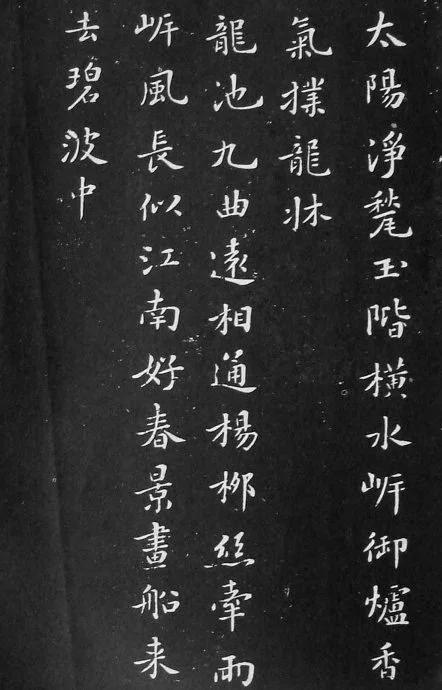 太陽淨甃玉階橫水岸御爐香
氣撲龍牀
龍池九曲遠相通楊柳絲牽兩
岸風長似江南好春景畫船来
去碧波中